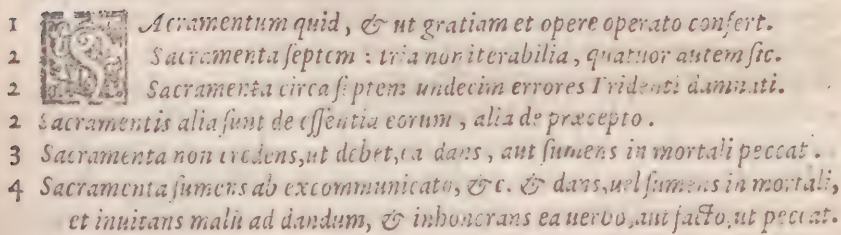 1 SAcramentum quid, & ut gratiam et opere operato confert.
2 Sacramenta septem : tria non iterabilia, quatuor autem sic.
2 Sacramenta circa septem undecim errores Tridenti damnati.
2 Sacramentis alia sunt de essentia eorum, alia de præcepto.
3 Sacramenta non credens, ut debet, ea dans, aut sumens in mortali peccat.
4 Sacramenta sumens ab excommunicato, &c. & dans, uel sumens in mortali,
et inuitans malū ad dandum, & inhonorans ea uerbo, aut facto, ut peccat.